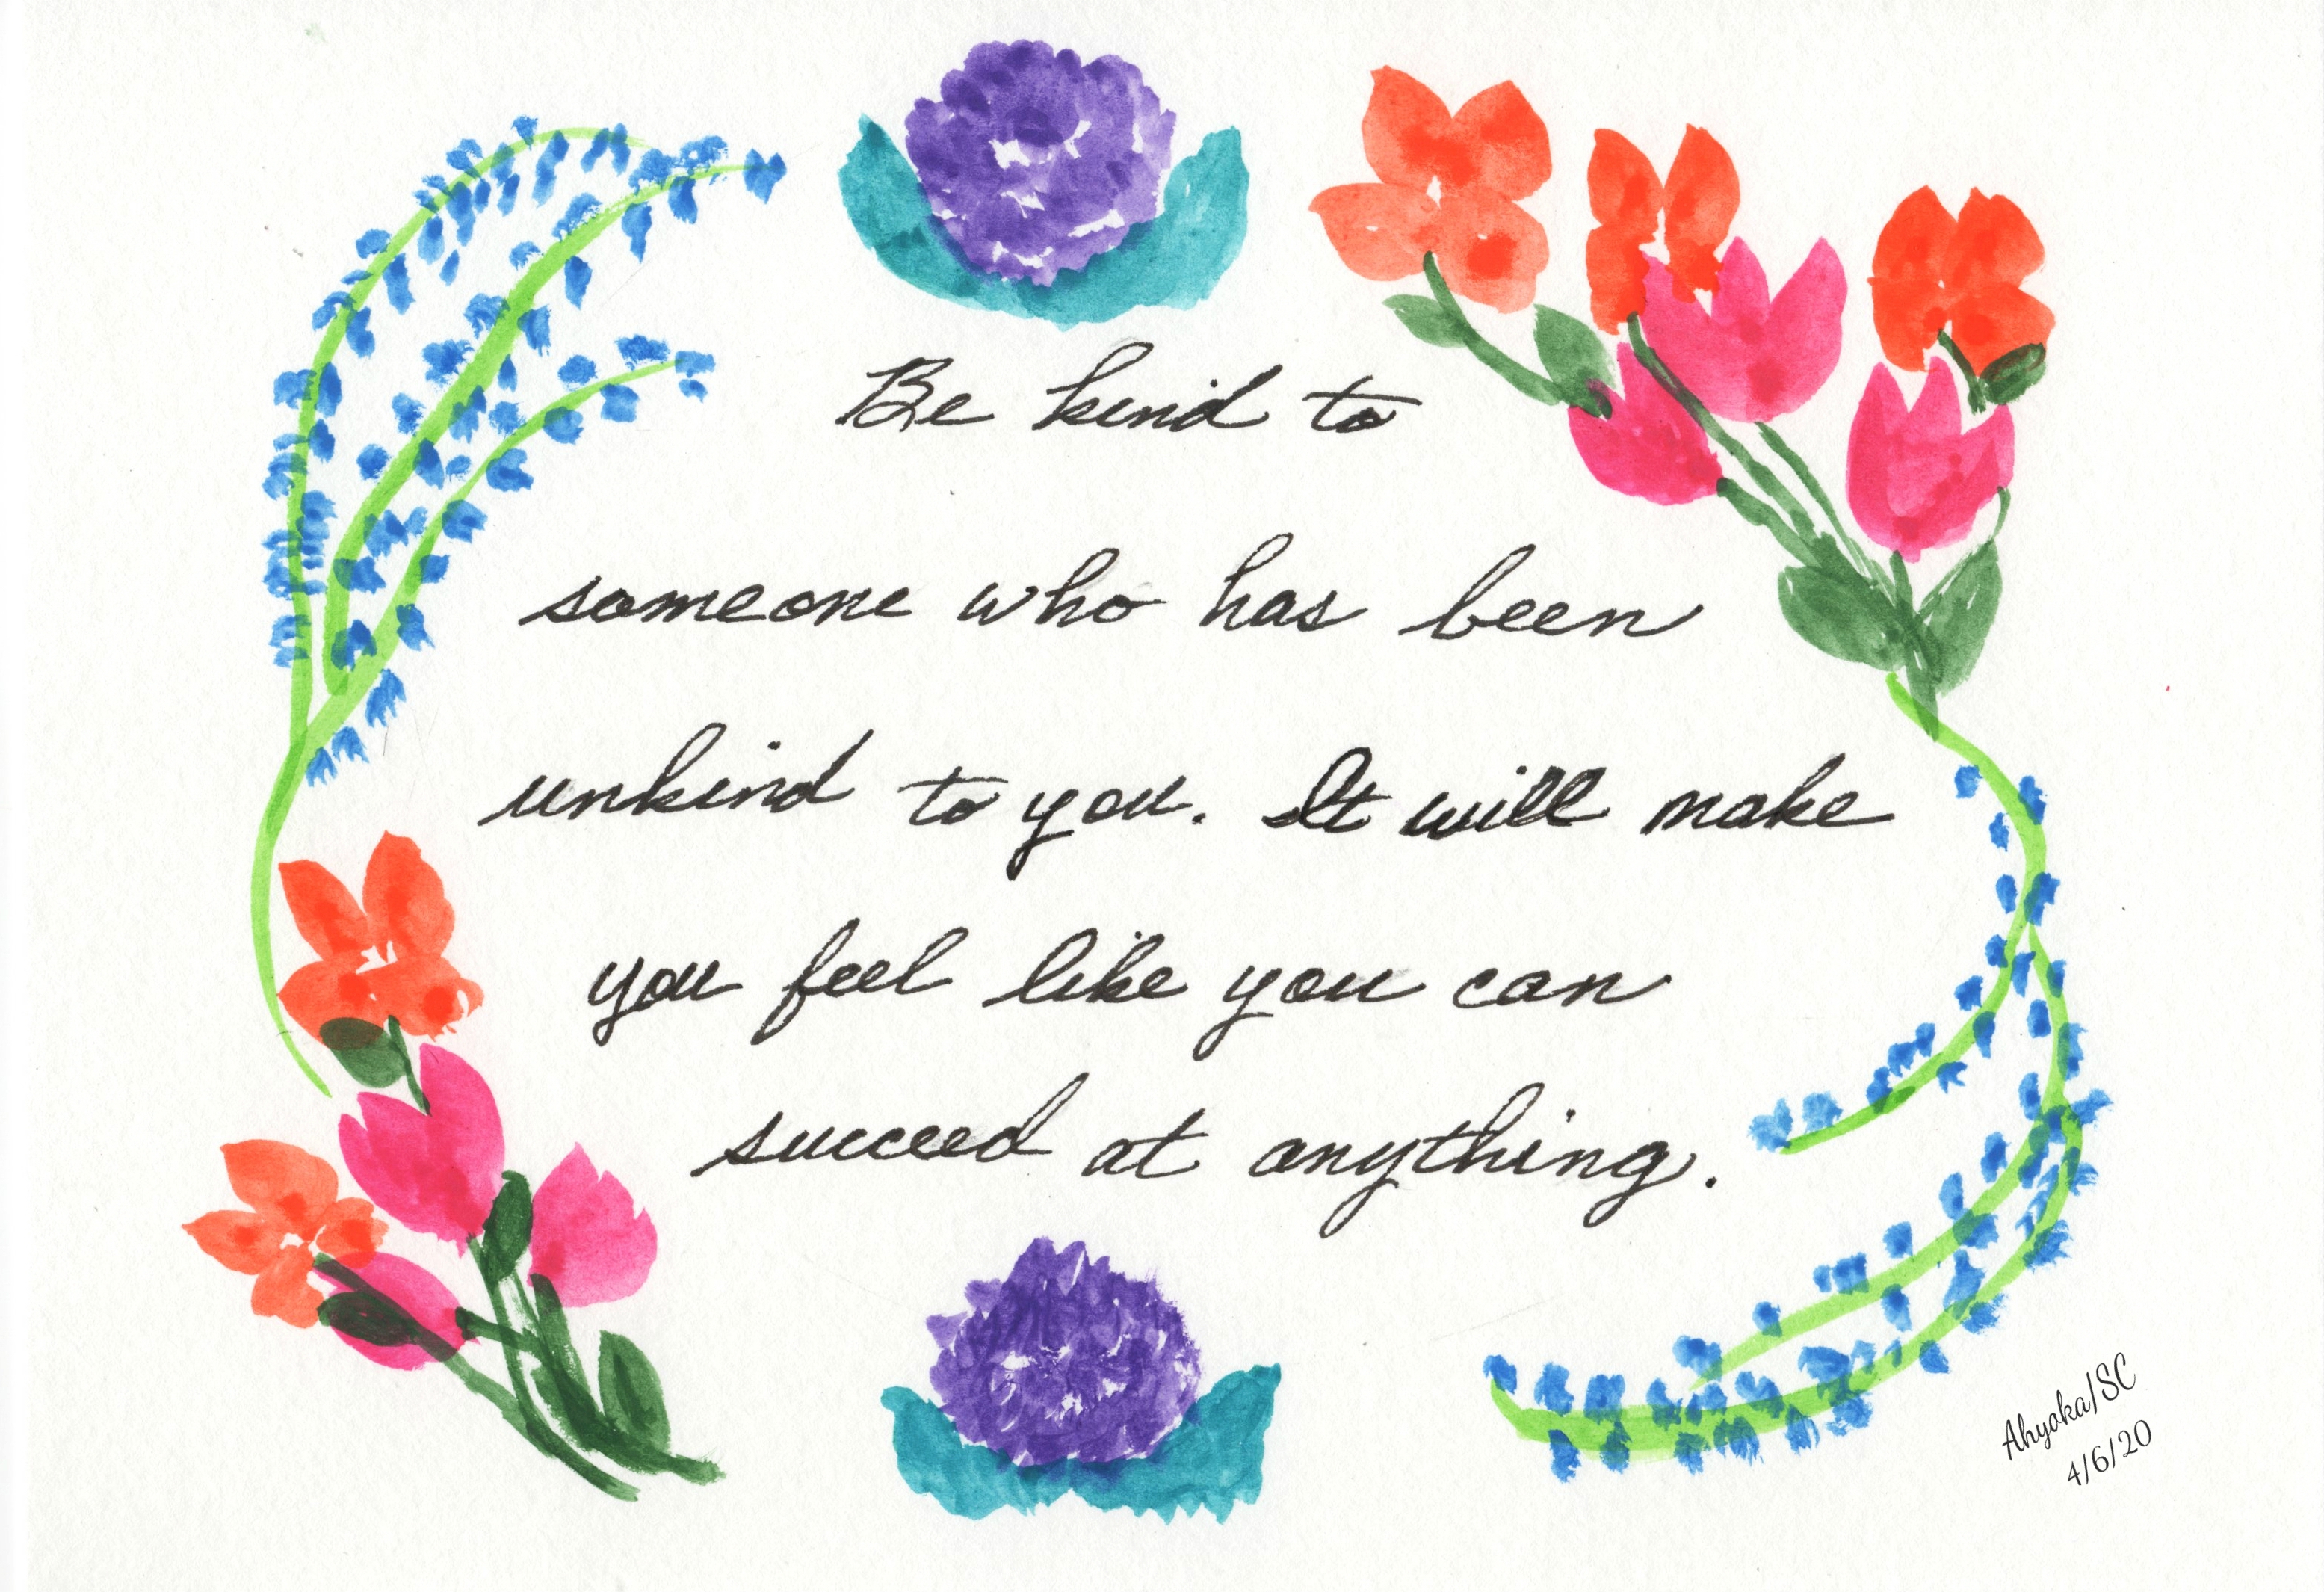 Be kind to
someone who has been
unkind to you. It will make
you feel like you can
succeed at anything.
Ahyoka/SC
4/6/20